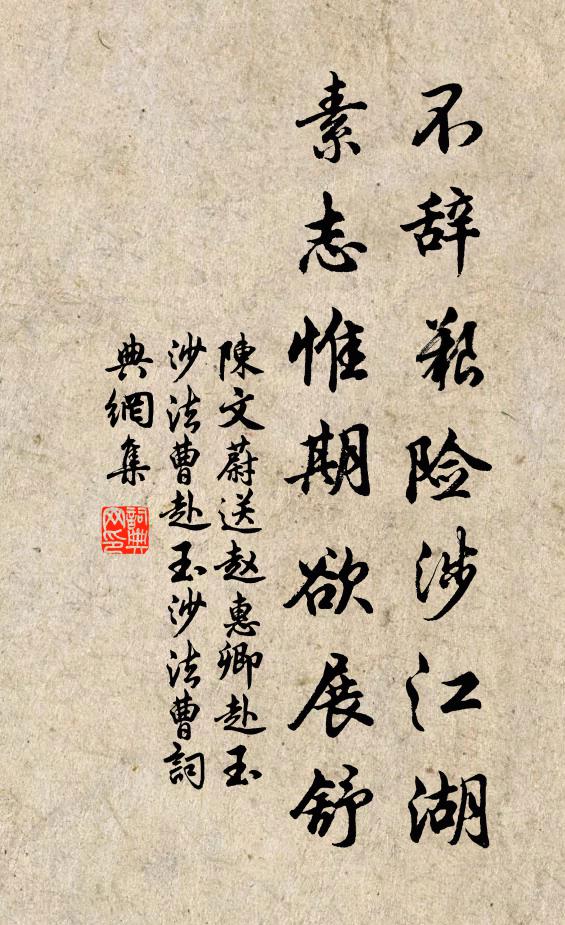 不辞艰险涉江湖
素志惟期欲展舒
陳文蔚送赵惠卿赴玉
沙法曹赴玉沙法曹詞
典網集
詞典网印